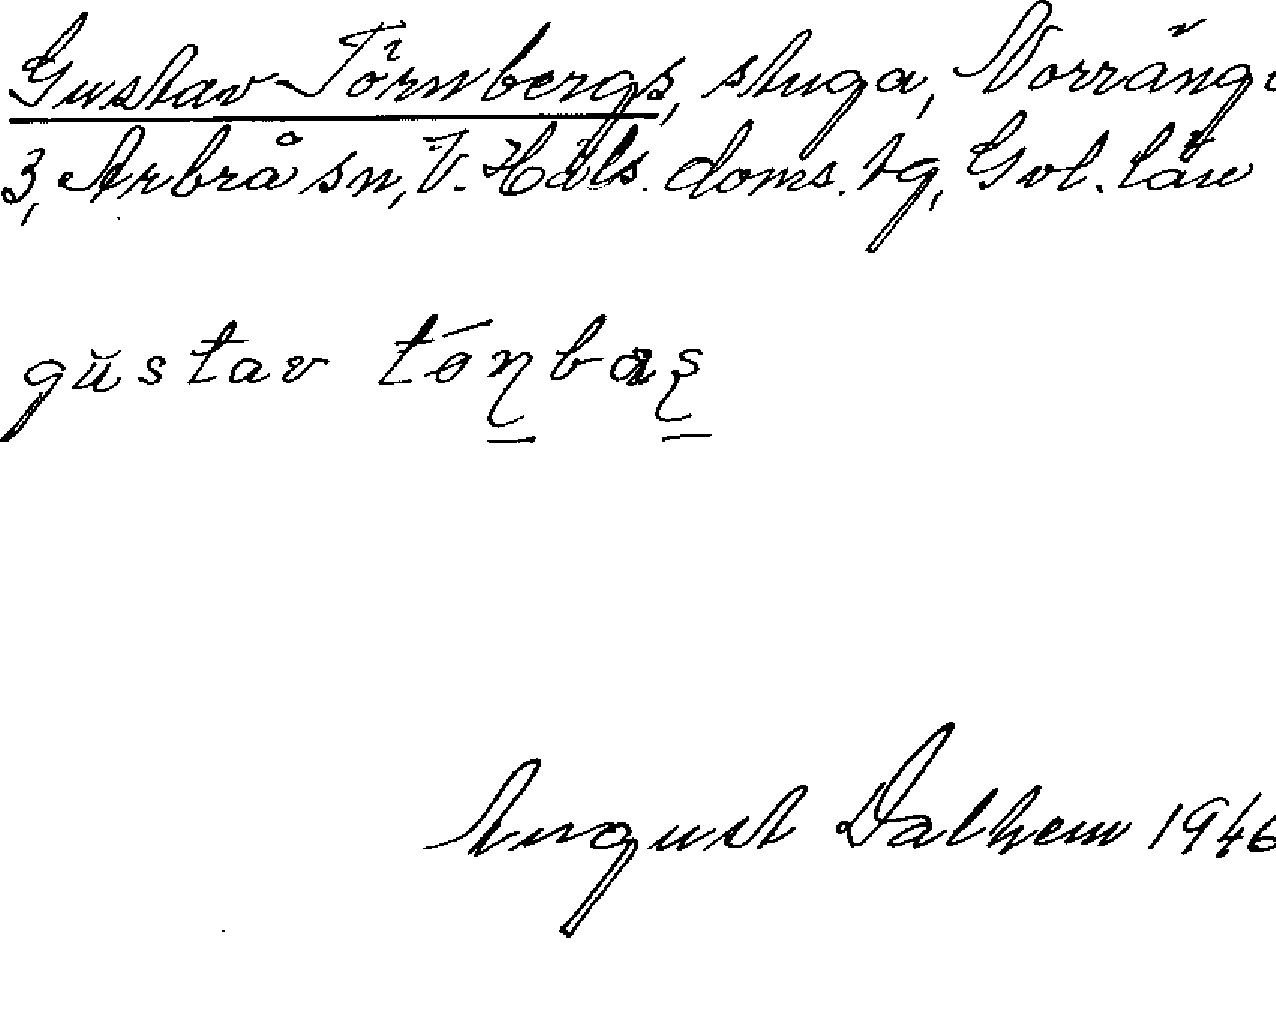 Gustav Törnbergs, stuga, Norränge
3, Arbrå sn, V. Häls. doms. tg, Gvl. län
gŭstav tǿɳbaʂ
August Dalhem 1946